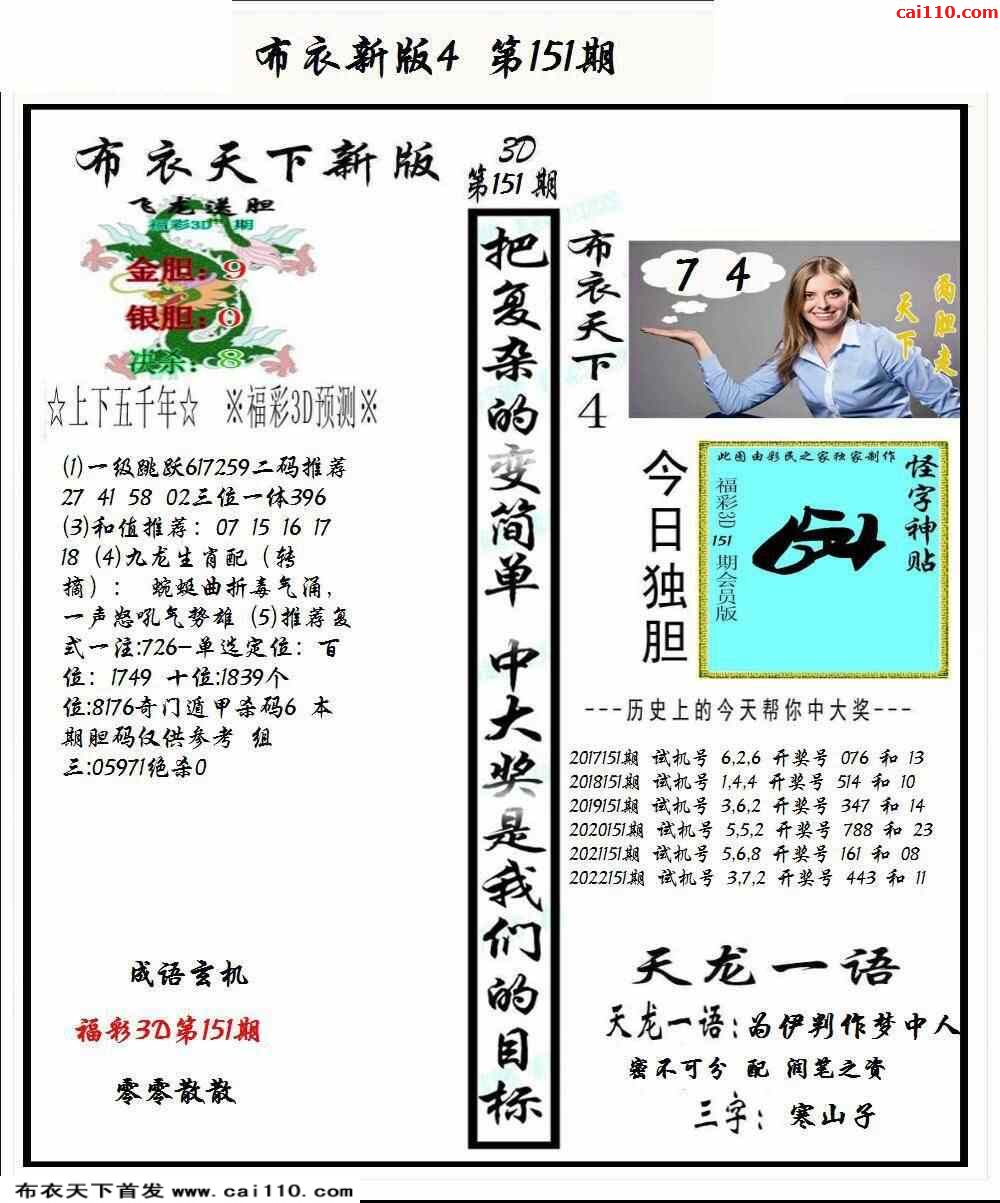 cai110.com
布衣新版4 第151期
布衣天下新版
飞龙送胆
福彩3D 期
金胆：9
银胆：0
决杀：8
☆上下五千年☆ ※福彩3D预测※
(1)一级跳跃617259二码推荐
27 41 58 02三位一体396
(3)和值推荐：07 15 16 17
18 (4)九龙生肖配（转
摘）： 蜿蜒曲折毒气涌,
一声怒吼气势雄 (5)推荐复
式一注:726-单选定位：百
位：1749 十位:1839个
位:8176奇门遁甲杀码6 本
期胆码仅供参考 组
三:05971绝杀0
成语玄机
福彩3D第151期
零零散散
3D
第151期
把复杂的变简单 中大奖是我们的目标
布衣天下4
7 4
两胆走
天下
今日独胆
此图由彩民之家独家制作
怪字神贴
福彩3D 151 期会员版
---历史上的今天帮你中大奖---
2017151期 试机号 6,2,6 开奖号 076 和 13
2018151期 试机号 1,4,4 开奖号 514 和 10
2019151期 试机号 3,6,2 开奖号 347 和 14
2020151期 试机号 5,5,2 开奖号 788 和 23
2021151期 试机号 5,6,8 开奖号 161 和 08
2022151期 试机号 3,7,2 开奖号 443 和 11
天龙一语
天龙一语:为伊判作梦中人
密不可分 配 润笔之资
三字： 寒山子
布衣天下首发 www.cai110.com